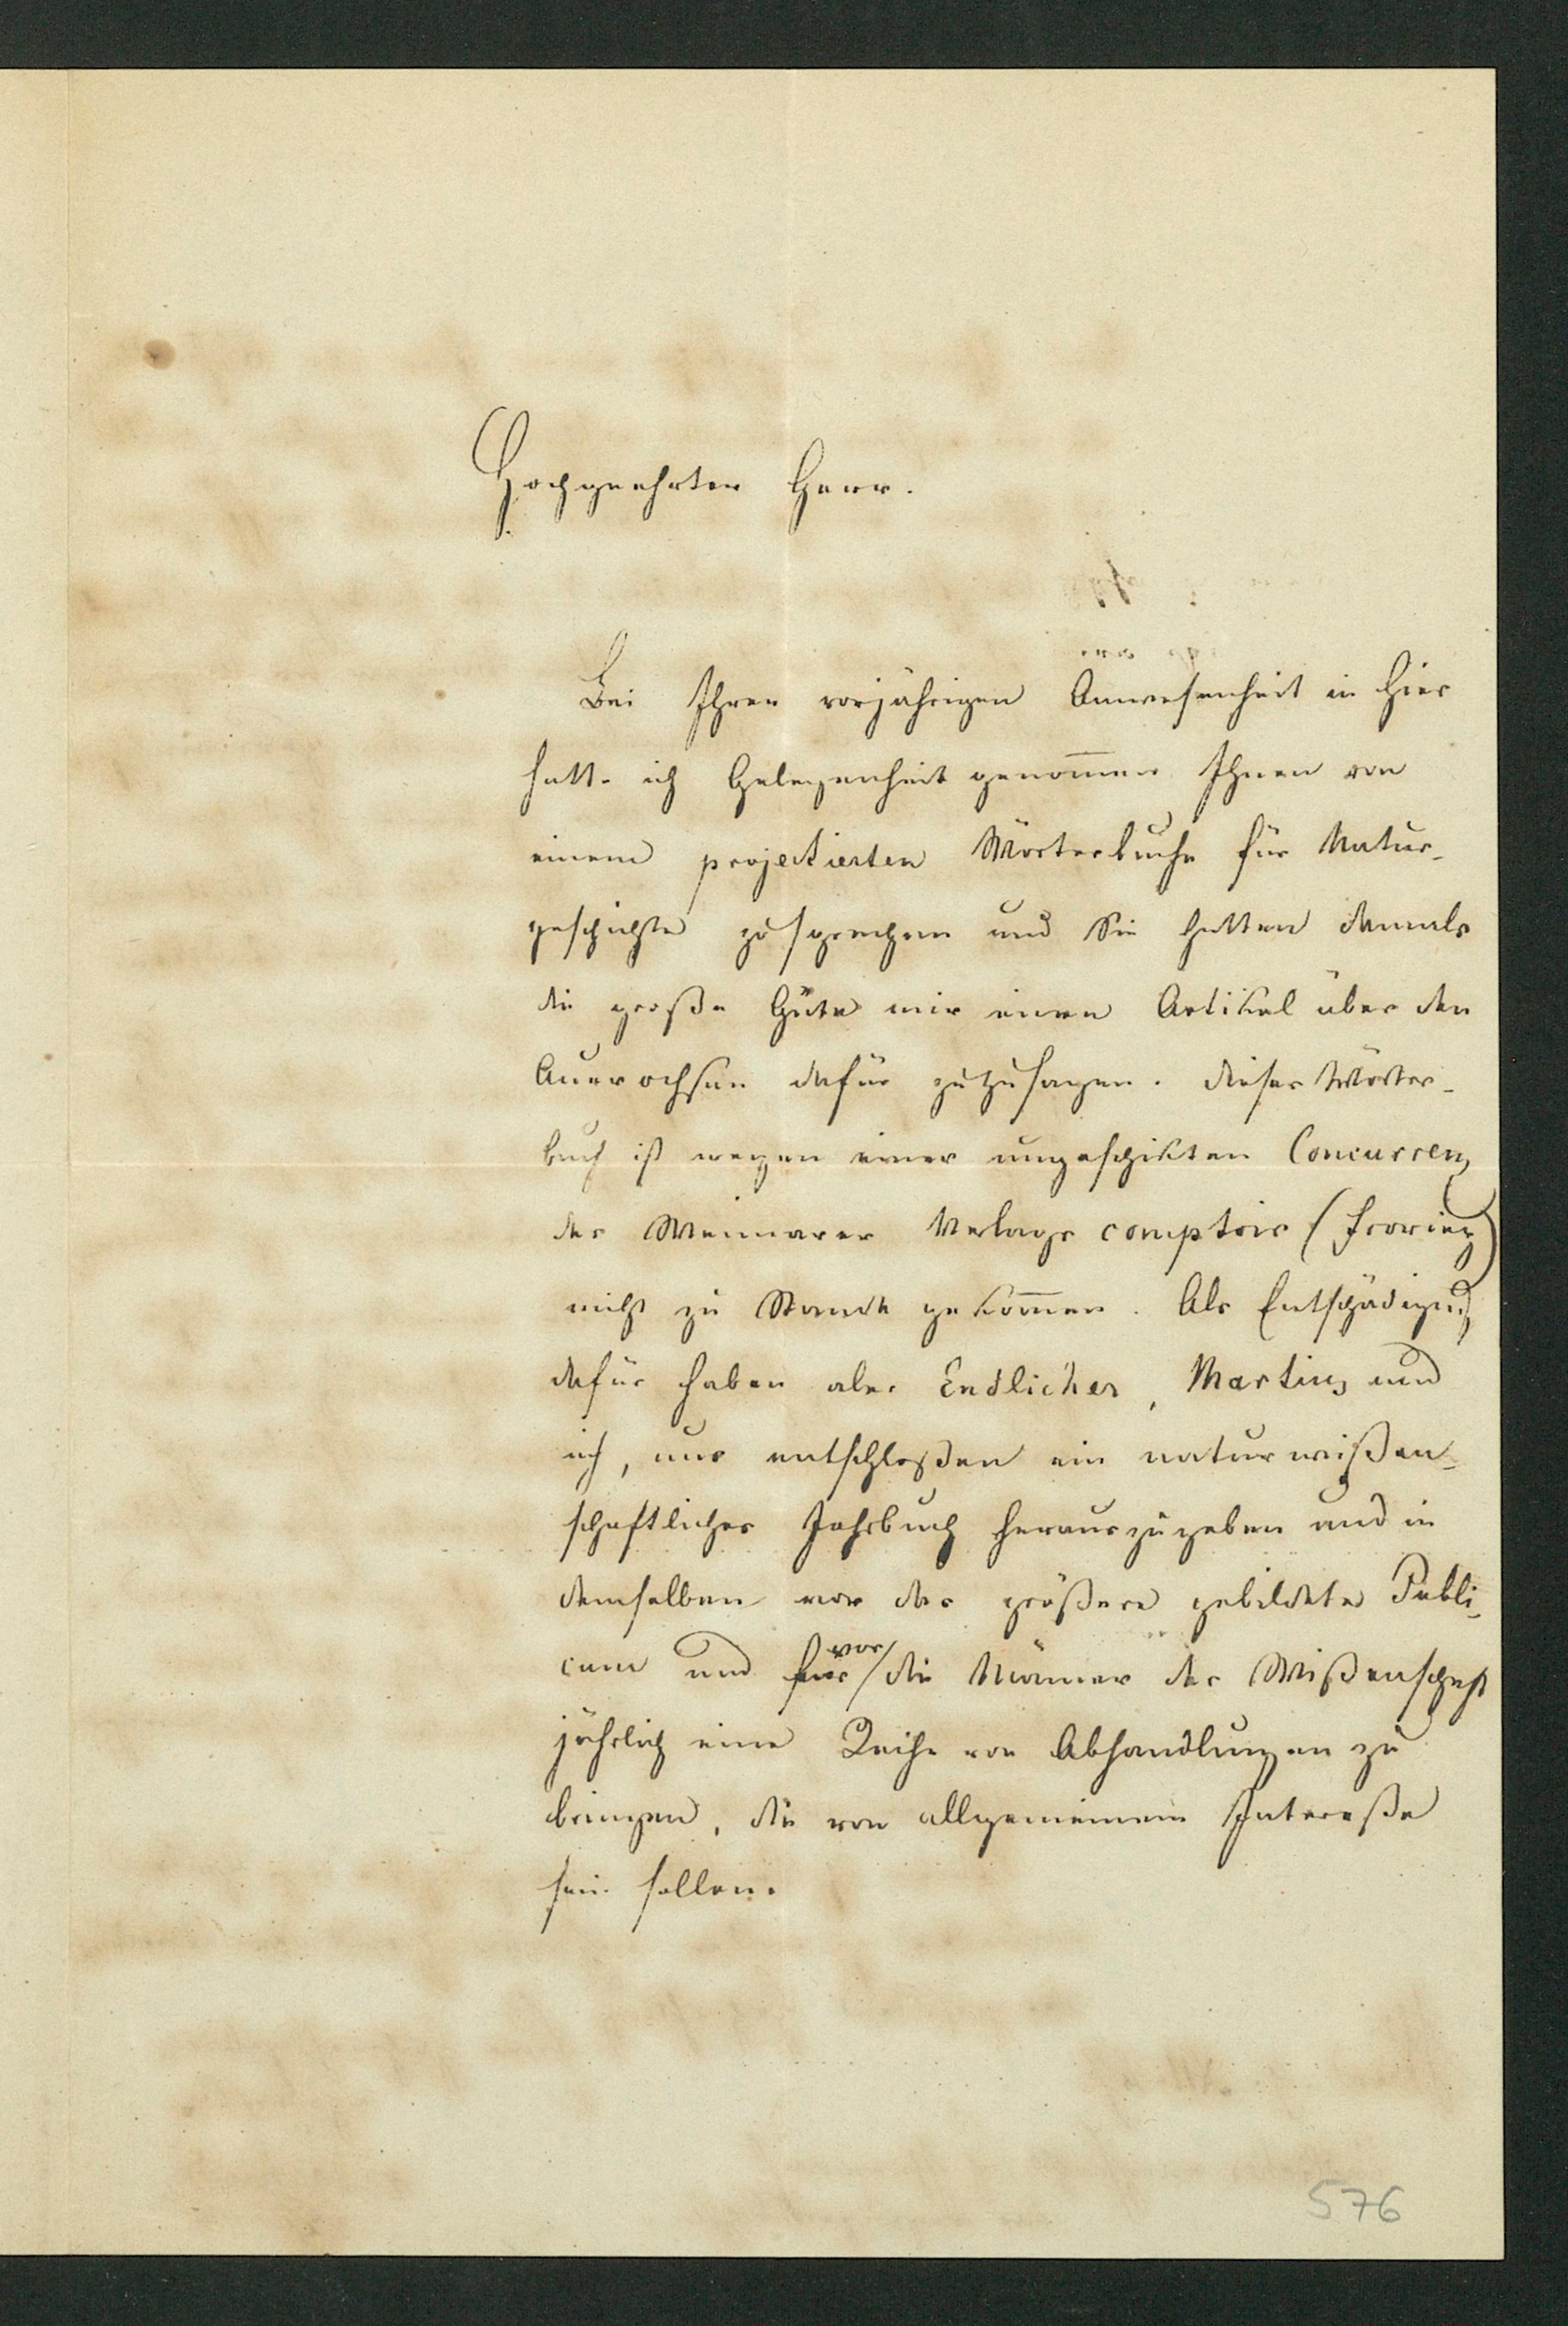 Hochgeehrter Herr.
Bei Ihrer vorjährigen Anwesenheit in hier
hatte ich Gelegenheit genom̅en Ihnen von
einem projectierten Wörterbuche für Natur-
geschichte zu sprechen und Sie hatten damals
die große Güte mir einen Artikel über den
Auerochsen dafür zuzusagen. Dieses Wörter-
buch ist wegen einer ungeschikten Concurrenz
des Weimarer Verlags comptoir (Froriep)
nicht zu Stande gekom̅en. Als Entschädigung
dafür haben aber Endlicher, Martius und
ich, uns entschloßen ein naturwißen-
schaftliches Jahrbuch herauszugeben und in
demselben vor das größere gebildete Publi-
cum und für vor die Männer der Wißenschaft
jährlich eine Reihe von Abhandlungen zu
bringen, die von allgemeinem Intereße
sein sollen.
576